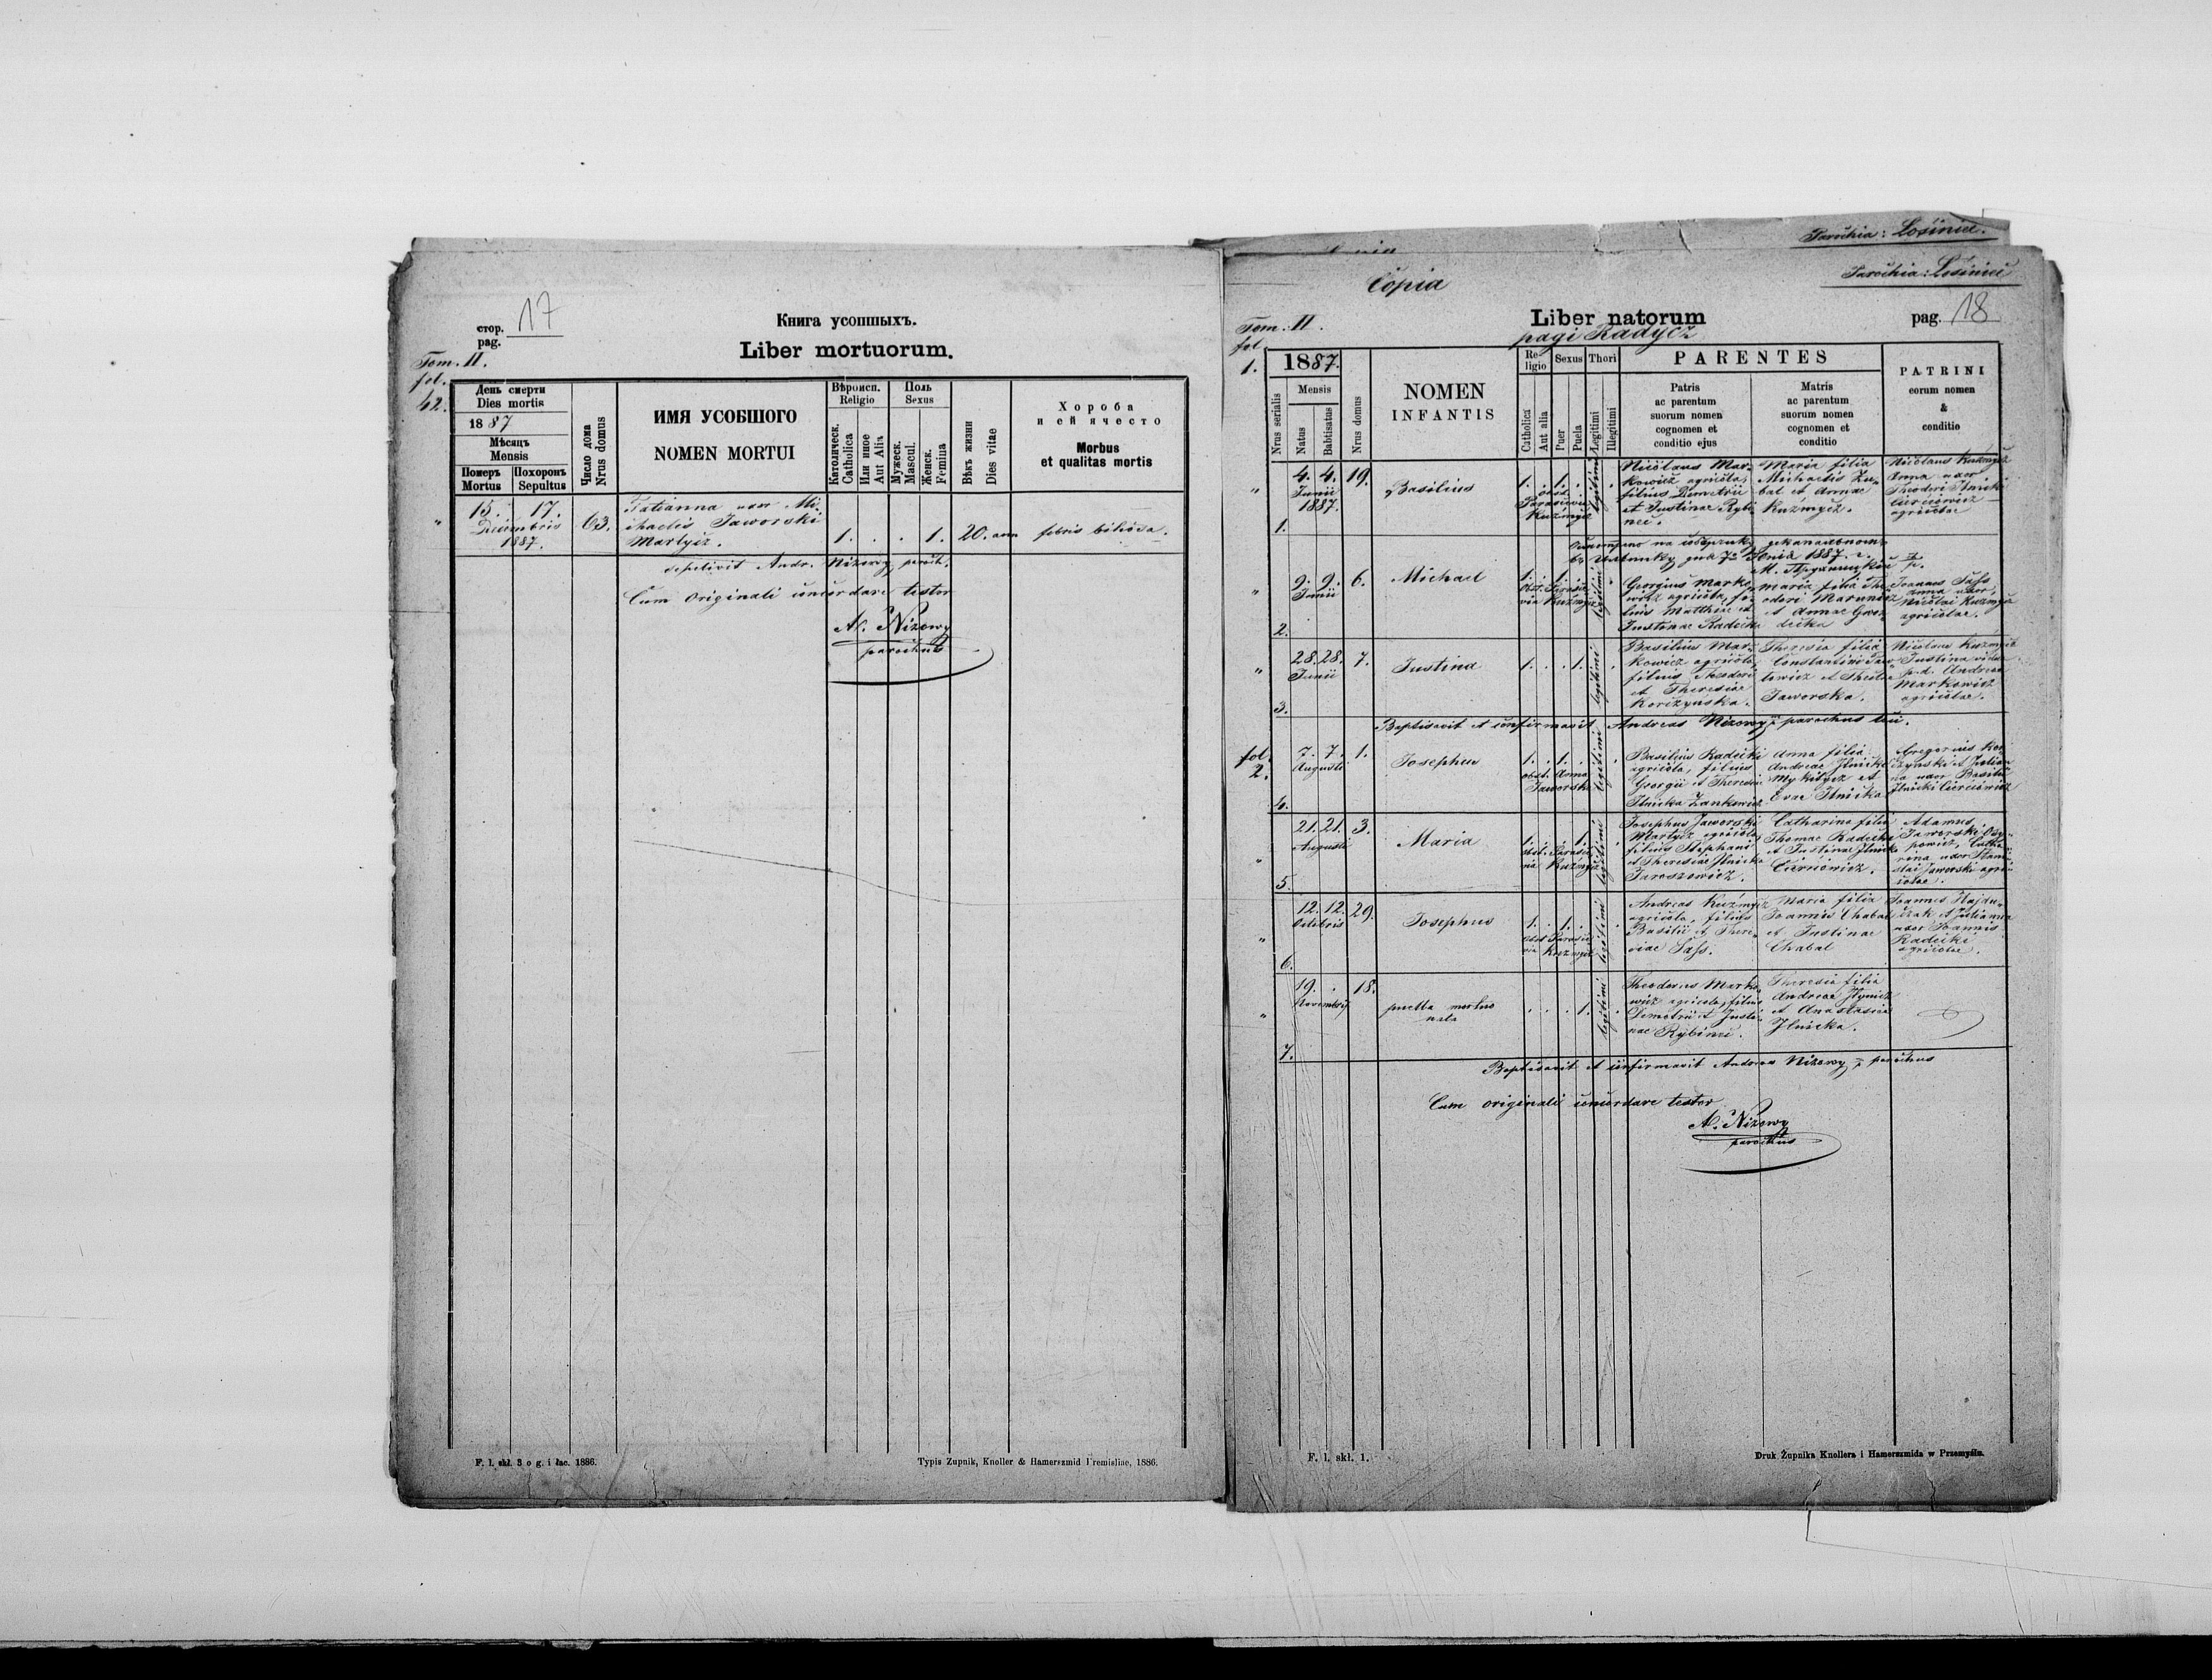 стор. 17
pag.
Книга усопшыхъ.
Liber mortuorum.
Tom. II.
fol.
42.
День смерти
Dies mortis
1887
Мѣсяцъ
Mensis
Померъ
Mortus
Похоронъ
Sepultus
Число дома
Nrus domus
ИМЯ УСОБШОГО
NOMEN MORTUI
Вѣроисп.
Religio
Католическ.
Catholica
Или иное
Aut Alia
Полъ
Sexus
Мужеск.
Mascul.
Женск.
Femina
Вѣкъ жизни
Dies vitae
Хороба
и ей ячесто
Morbus
et qualitas mortis
" 15. 17. 63. Tatianna uxor Mi-
Decembris ihaelis Jaworski
1887. Martycz. 1. . . 1. 20. ann febris biliosa.
sepelivit Andr. Nizowy paroch.
Cum originali concordare testor
A. Nizowy
parochus
F. l. skł. 3 o g. i łac. 1886.
Typis Zupnik, Knoller & Hamerszmid Premisliae, 1886.
Parochia: Łosiniec.
Parochia: Łosiniec
Copia
Tom. II.
fol.
1.
Liber natorum
pagi Radycz
pag. 18
1887.
Nrus serialis
Mensis
Natus
Babtisatus
Nrus domus
NOMEN
INFANTIS
Religio
Catholica
Aut alia
Sexus
Puer
Puela
Thori
Legitimi
Illegitimi
PARENTES
Patris
ac parentum
suorum nomen
cognomen et
conditio ejus
Matris
ac parentum
suorum nomen
cognomen et
conditio
PATRINI
eorum nomen
&
conditio
" 1. 4. 4. 19.
Junii
1887.
Basilius
1. . 1. .
obst.
Parasiewia
Kuzmycz
legitimi
Nicolaus Mar-
kowicz agricola,
filius Demetrii
et Justinae Rybi
nci.
Maria filia
Michaelis
et Annae
Kuzmycz.
Nicolaus Kuzmycz
Anna uxor
Theodori Ilnicki
agricolae
7 1887.
" 2. 9. 9. 6.
Junii
Michael
Kuzmycz
legitimi
Georgius Marko
wicz agricola, fi-
lius Matthiae et
Justinae Radecki
Maria filia The-
odori
et Annae
Joannes Sass
Anna uxor
Nicolai Kuzmycz
agricolae.
" 3. 28. 28. 7.
Junii
Justina
1. . . 1.
legitimi
Basilius Mar-
kowicz agricola,
filius Theodori
et Theresiae
Korczynska.
Theresia filia
Constantini
Jaworska.
Nicolaus Kuzmycz
Justina vidua
p.d. Andreae
Markowicz
agricolae.
Baptisavit et confirmavit Andreas Nizowy parochus loci.
fol.
2.
4. 7. 7. 1.
Augusti
Josephus
1. . 1. .
obst. Anna
Jaworska
legitimi
Basilius Radecki
agricola, filius
Georgii et Theresiae
Ilnicka Zankowicz
Anna filia
Andreae Ilnicki
Mykitycz et
Evae Ilnicka
Gregorius Kor-
czynski et Julian
na uxor Basilii
Ilnicki
" 5. 21. 21. 3.
Augusti
Maria
1. . . 1.
Kuzmycz
legitimi
Josephus Jaworski
Martycz agricola,
filius Stephani
et Theresiae Ilnicka
Jaroszewicz.
Catharina filia
Thomae Radecki
et Justinae Ilnicka
Adamus
Jaworski Osy-
powicz, Catha
rina uxor
Jaworski agri-
colae.
" 6. 12. 12. 29.
Octobris
Josephus
1. . 1. .
Kuzmycz
legitimi
Andreas Kuzmycz
agricola, filius
Basilii et There-
siae Sass.
Maria filia
Joannis Chabal
et Justinae
Chabal
Joannes Hajdu-
czak et Julianna
uxor Joannis
Radecki
agricolae.
" 7. 19. . 18.
Novembris
puella mortuo
nata
. . . 1.
legitimi
Theodorus Marko-
wicz agricola, filius
Demetrii et Justi-
nae Rybinci.
Theresia filia
Andreae
et Anastasiae
Ilnicka.
Baptisavit et confirmavit Andreas Nizowy parochus
Cum originali concordare testor
A. Nizowy
parochus
F. l. skł. 1.
Druk Żupnika Knollera i Hamerszmida w Przemyślu.